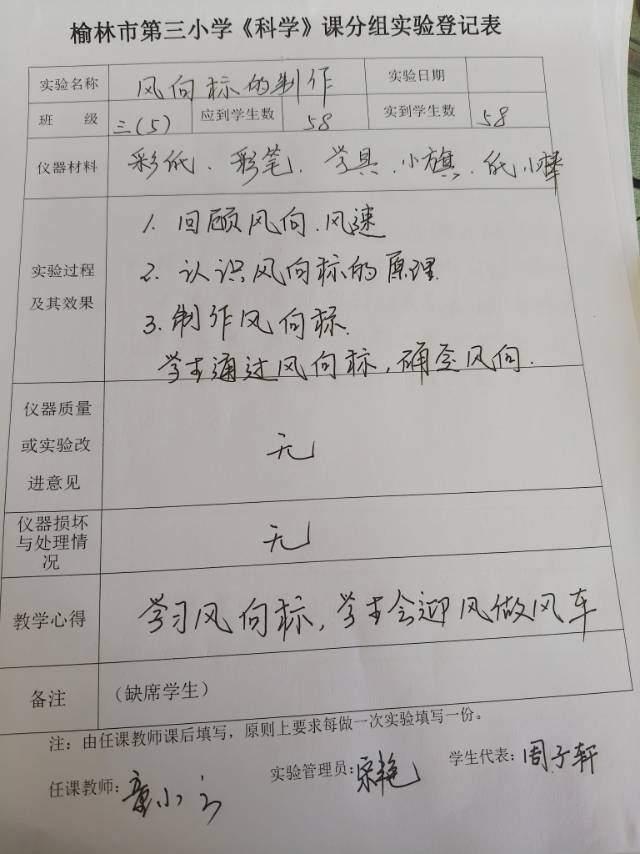 榆林市第三小学《科学》课分组实验登记表
实验名称 风向标的制作 实验日期
班 级 三(5) 应到学生数 58 实到学生数 58
仪器材料 彩纸、彩笔、学具、小旗、纸小棒
1. 回顾风向、风速
实验过程 2. 认识风向标的原理.
及其效果
3. 制作风向标.
学生通过风向标,确定风向.
仪器质量
或实验改 无
进意见
仪器损坏
与处理情 无
况
教学心得 学习风向标,学生会迎风做风车
备注 (缺席学生)
注:由任课教师课后填写,原则上要求每做一次实验填写一份。
任课教师: 小 实验管理员: 艳 学生代表: 周子轩